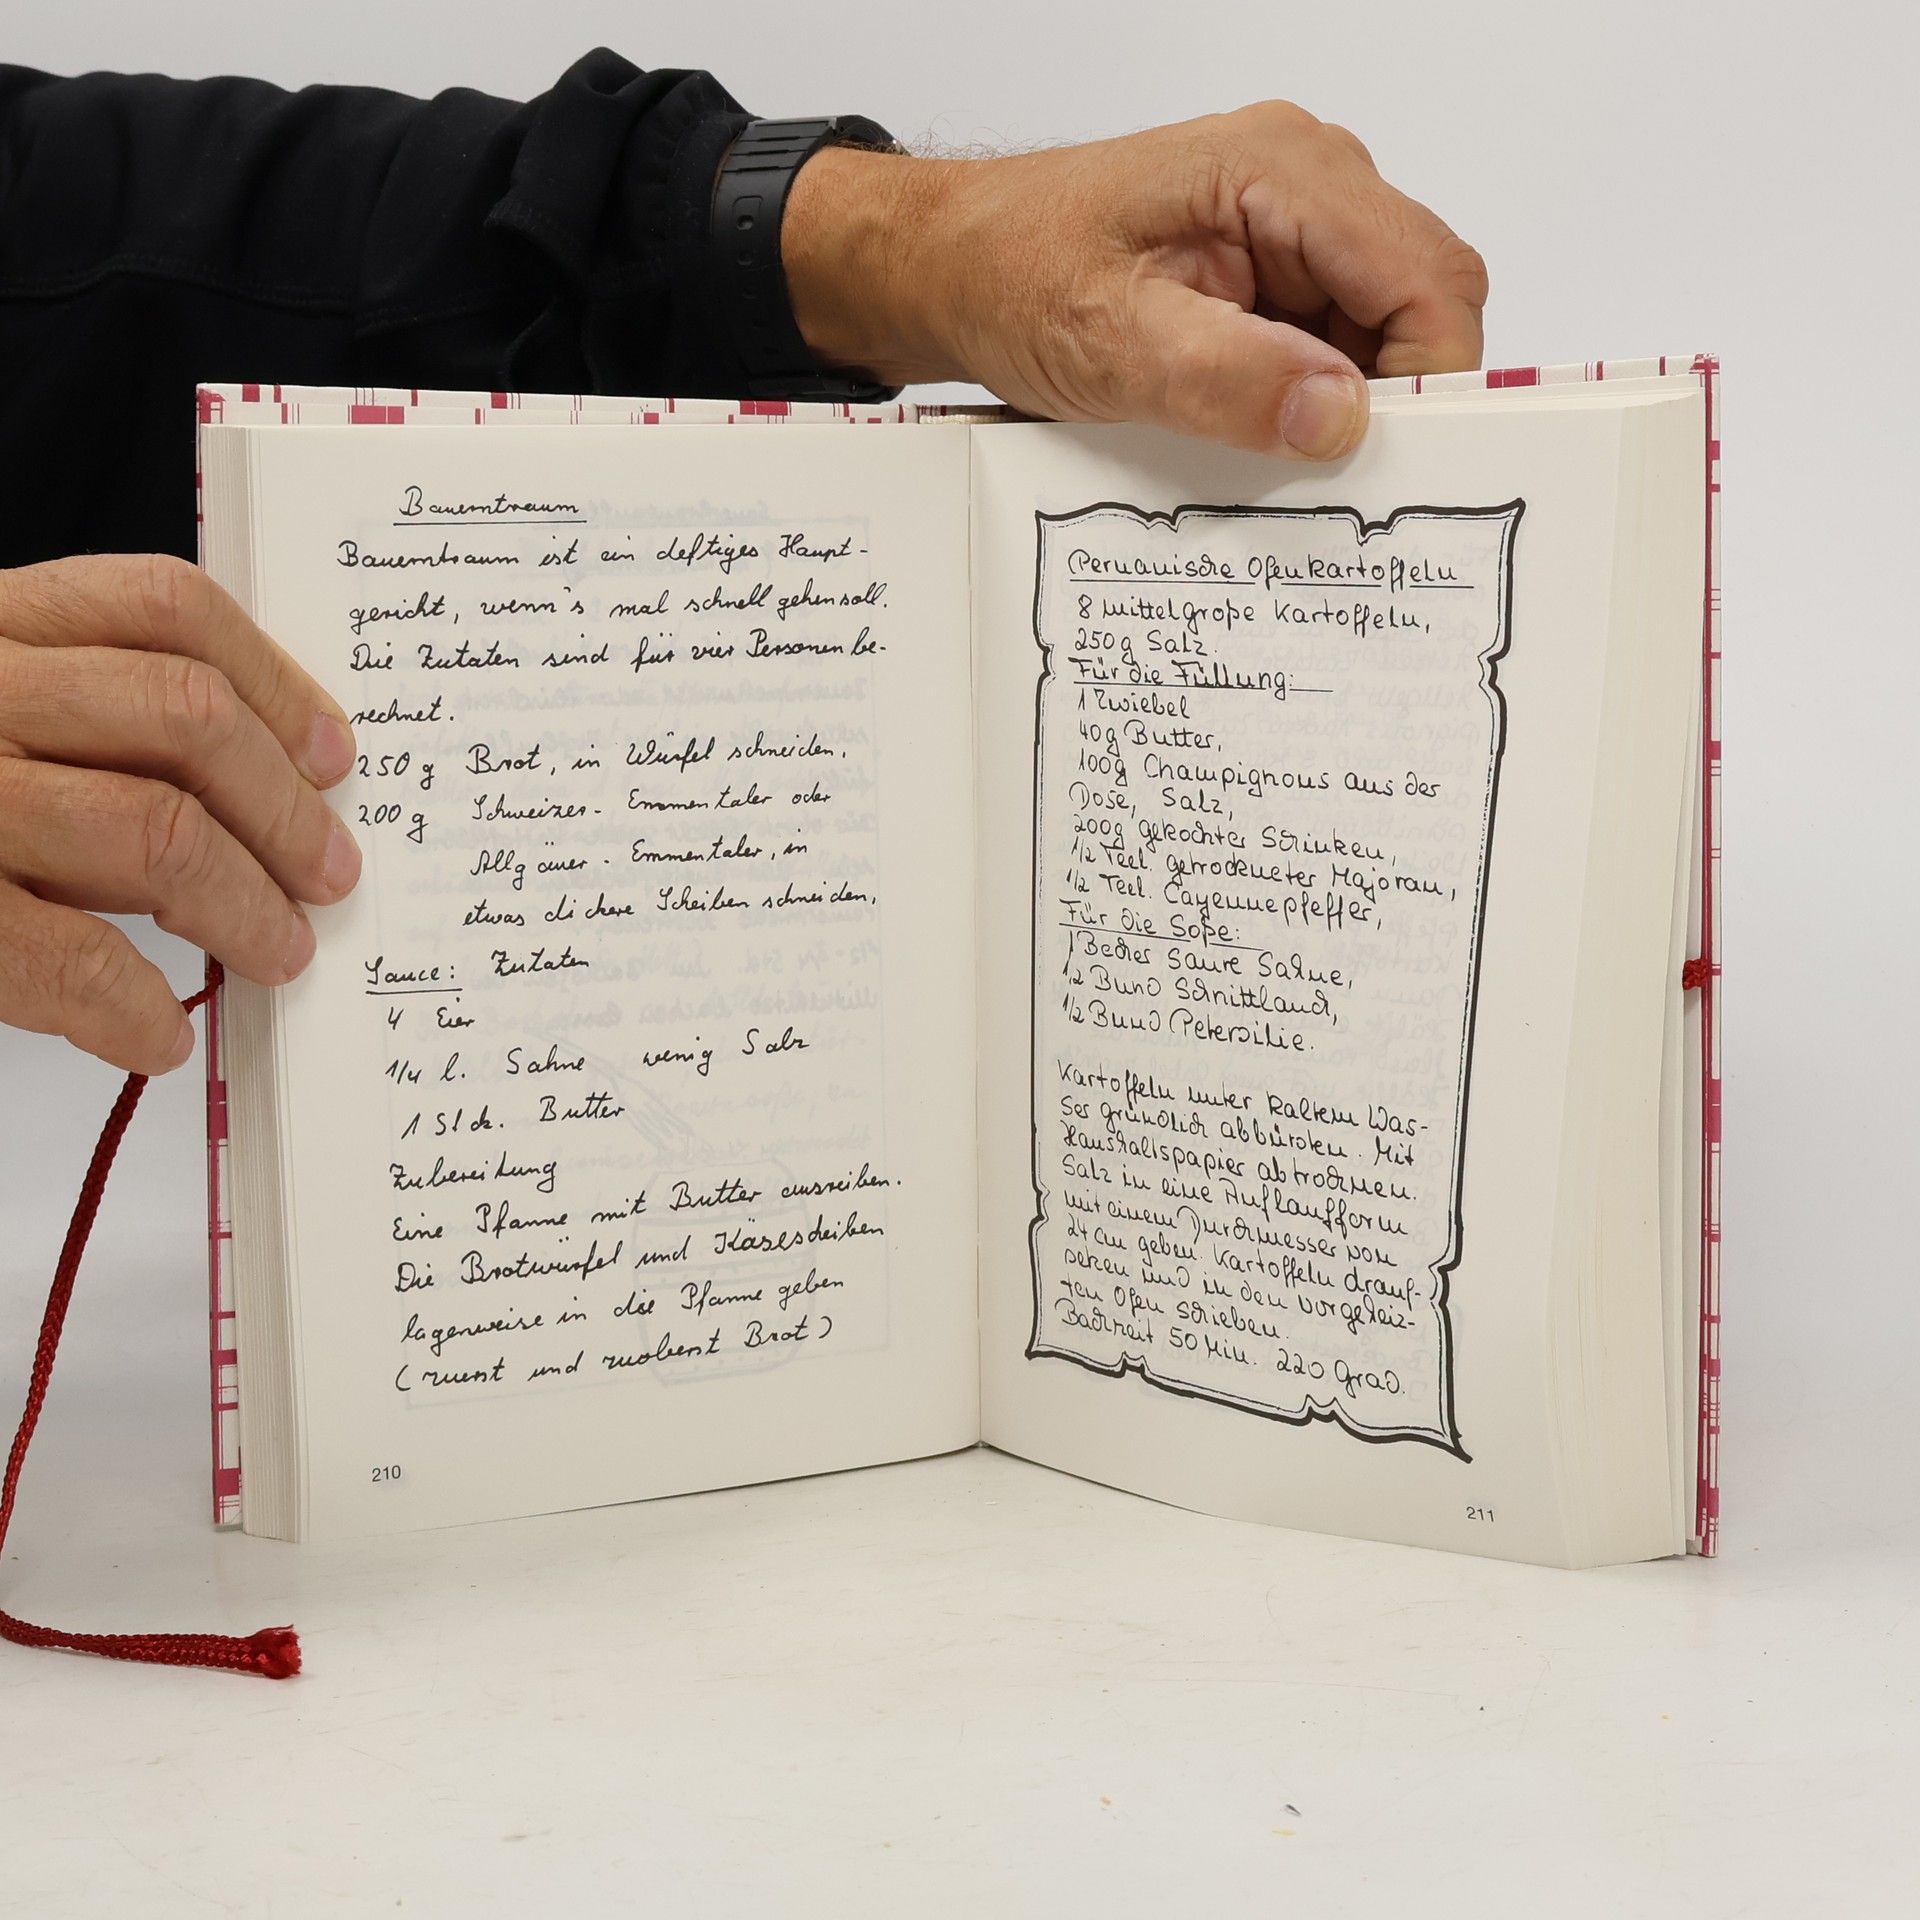 Bauerntraum
Bauerntraum ist ein deftiges Haupt-
gericht, wenn's mal schnell gehen soll.
Die Zutaten sind für vier Personen be-
rechnet.
250 g Brot, in Würfel schneiden,
200 g Schweizer - Emmentaler oder
Allgäuer - Emmentaler, in
etwas dickere Scheiben schneiden,
Sauce: Zutaten
4 Eier
1/4 l. Sahne wenig Salz
1 Stck. Butter
Zubereitung
Eine Pfanne mit Butter ausreiben.
Die Brotwürfel und Käsescheiben
lagenweise in die Pfanne geben
(zuerst und zuoberst Brot)
210
Peruanische Ofenkartoffeln
8 mittelgroße Kartoffeln,
250g Salz.
Für die Füllung:
1 Zwiebel
40g Butter,
100g Champignons aus der
Dose, Salz,
200g gekochter Schinken,
1/2 Teel. getrockneter Majoran,
1/2 Teel. Cayennepfeffer,
Für die Soße:
1 Becher saure Sahne,
1/2 Bund Schnittlauch,
1/2 Bund Petersilie.
Kartoffeln unter kaltem Was-
ser gründlich abbürsten. Mit
Haushaltspapier abtrocknen.
Salz in eine Auflaufform
mit einem Durchmesser von
24 cm geben. Kartoffeln drauf-
setzen und in den vorgeheiz-
ten Ofen schieben.
Backzeit 50 Min. 220 Grad.
211